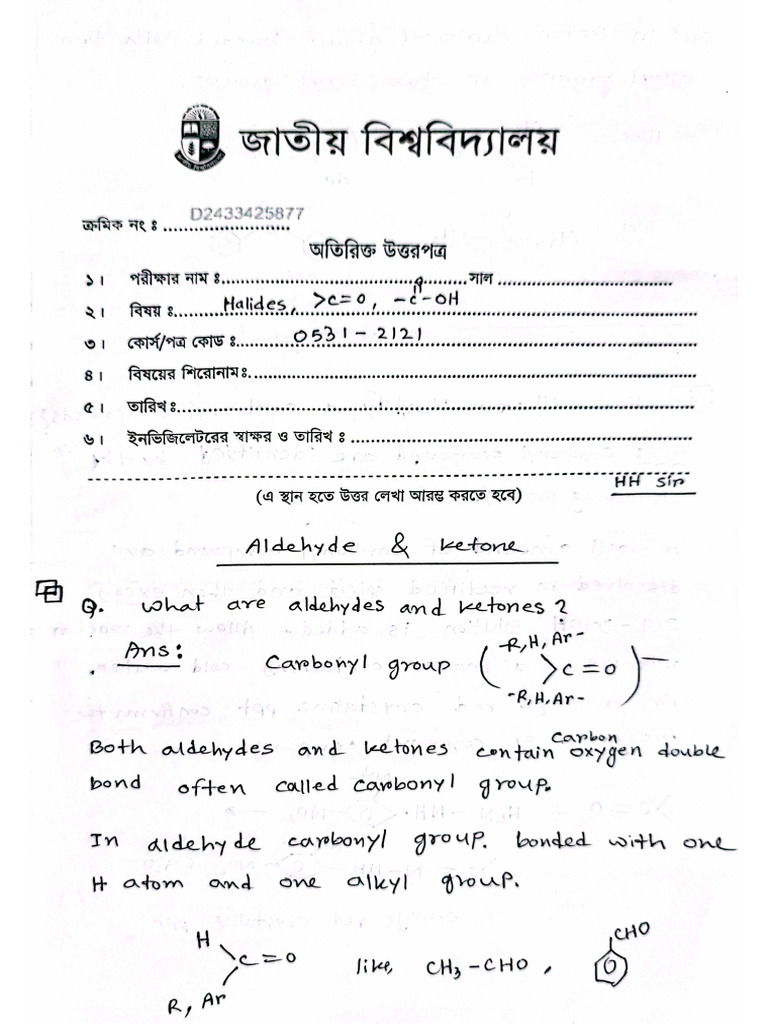 জাতীয় বিশ্ববিদ্যালয়
ক্রমিক নং ঃ D2433425877
অতিরিক্ত উত্তরপত্র
১। পরীক্ষার নাম ঃ সাল
২। বিষয় ঃ Halides, >C=O, -C-OH
O
৩। কোর্স/পত্র কোড ঃ 0531-2121
৪। বিষয়ের শিরোনাম ঃ
৫। তারিখ ঃ
৬। ইনভিজিলেটরের স্বাক্ষর ও তারিখ ঃ
HH Sir
(এ স্থান হতে উত্তর লেখা আরম্ভ করতে হবে)
Aldehyde & Ketone
Q. What are aldehydes and ketones?
Ans: Carbonyl group (-R,H,Ar- >C=O -R,H,Ar-)
Both aldehydes and ketones contain carbon oxygen double
bond often called carbonyl group.
In aldehyde carbonyl group. bonded with one
H atom and one alkyl group.
H
C=O like, CH3-CHO, CHO
R, Ar